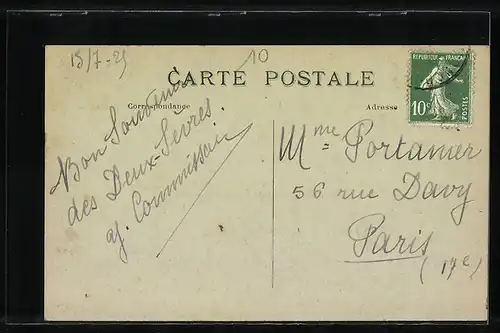 15/7-25
10
CARTE POSTALE
Correspondance
Adresse
REPUBLIQUE FRANÇAISE
10c
POSTES
Bon Souvenir
des Deux-Sèvres.
Mme Portanier
56 rue Davy
Paris
(17e)